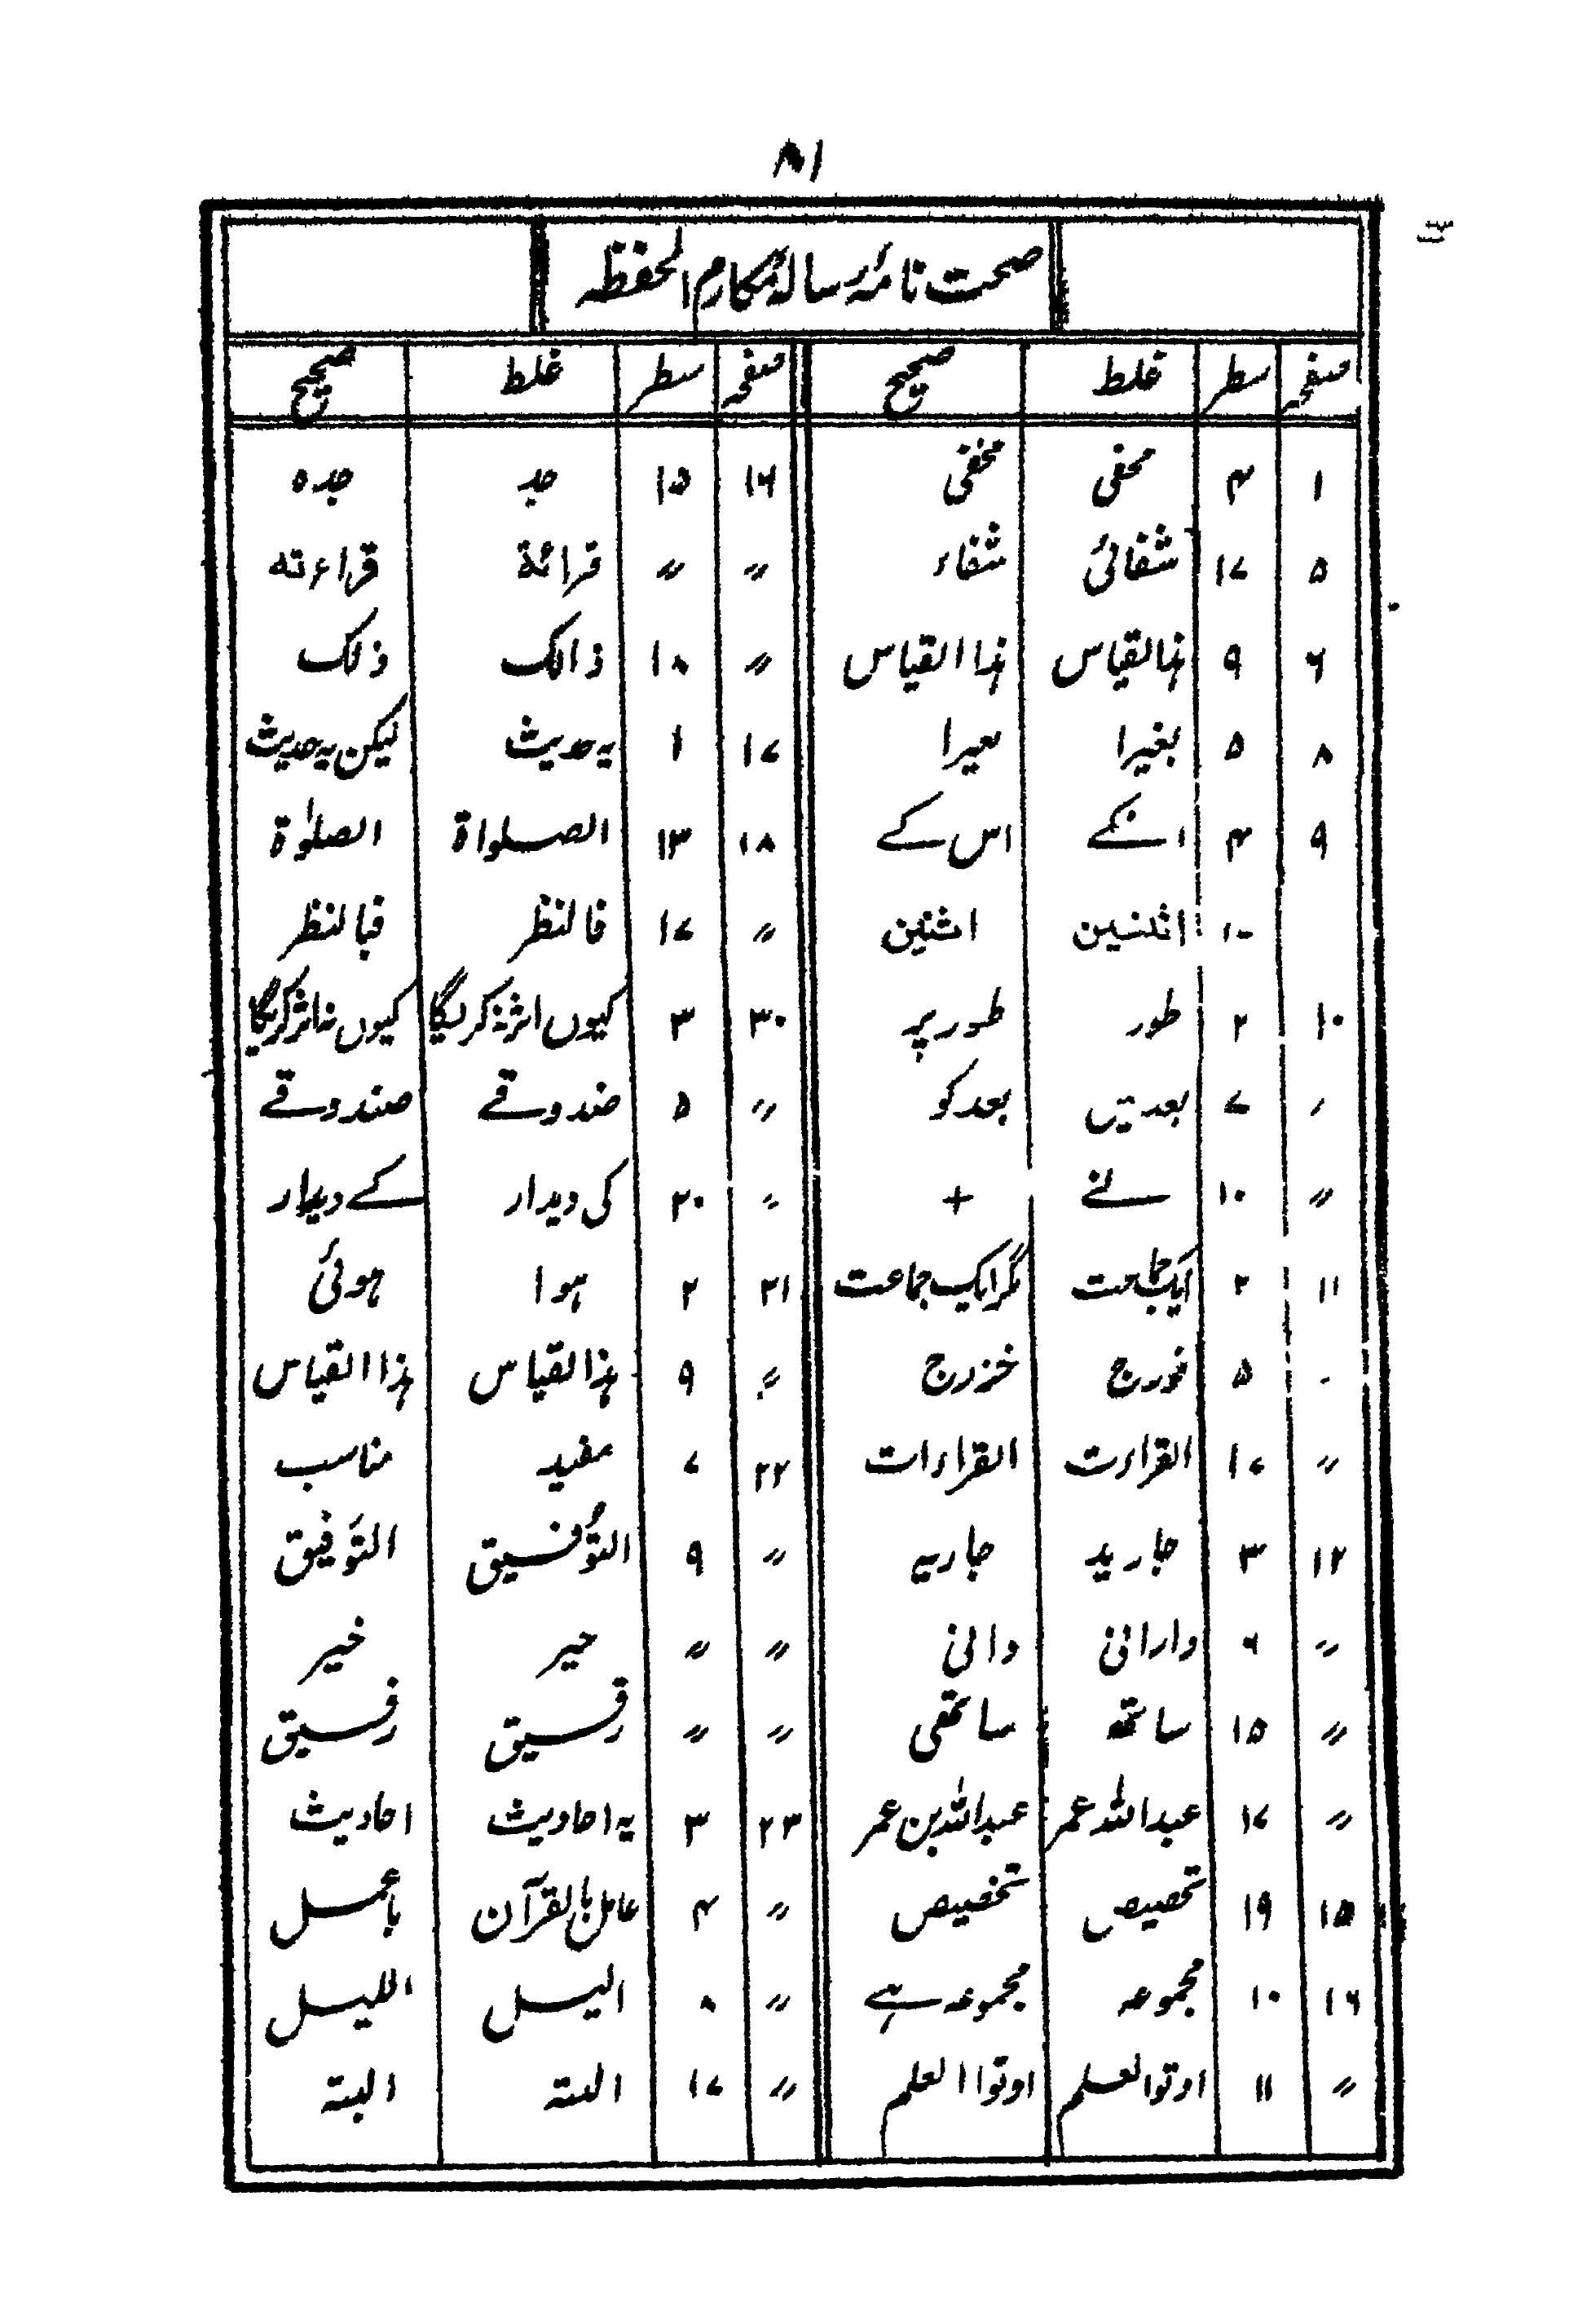 ۸۱
صحت نامہ رسالہ مکارم الحفظہ
صفحہ سطر غلط صحیح صفحہ سطر غلط صحیح
۱ ۴ محفی مخفی ۱۶ ۱۵ جد جدہ
۵ ۱۷ شفائی شفاء 〃 〃 قرائة قراءتہ
۶ ۹ ہذالقیاس ہذا القیاس 〃 ۱۸ ذالک ذلک
۸ ۵ بغیرا بعیرا ۱۷ ۱ یہ حدیث لیکن یہ حدیث
۹ ۴ انکے اس کے ۱۸ ۱۳ الصلواة الصلوٰة
۱۰ اثنین 〃 ۱۷ فالنظر فبالنظر
۱۰ ۲ طور طور پر ۳۰ ۳ کیوں اثر نہ کریگا کیوں نہ اثر کریگا
〃 ۷ بعد میں بعد کو 〃 ۵ ضندوقے صندوقے
〃 ۱۰ نے + 〃 ۲۰ کی دیدار کے دیدار
۱۱ ۲ ایک جماعت مگر ایک جماعت ۲۱ ۲ ہوا ہوئی
〃 ۵ خورج خزرج 〃 ۹ ہذالقیاس ہذا القیاس
〃 ۱۷ القراءت القراءات ۲۲ ۷ مفید مناسب
۱۲ ۳ جارید جاریہ 〃 ۹ التوفیق التوفیق
〃 ۶ وارانی دانی 〃 〃 حیر خیر
〃 ۱۵ ساتھ ساتھی 〃 〃 رقیق رفیق
〃 ۱۷ عبداللہ عمر عبداللہ بن عمر ۲۳ ۳ یہ احادیث احادیث
۱۵ ۱۹ تحصیص تخصیص 〃 ۴ عامل بالقرآن باعمل
۱۶ ۱۰ مجموعہ مجموعہ سے 〃 ۸ الیل اللیل
〃 ۱۱ اوتوالعلم اوتوا العلم 〃 ۱۷ الىتہ البتہ